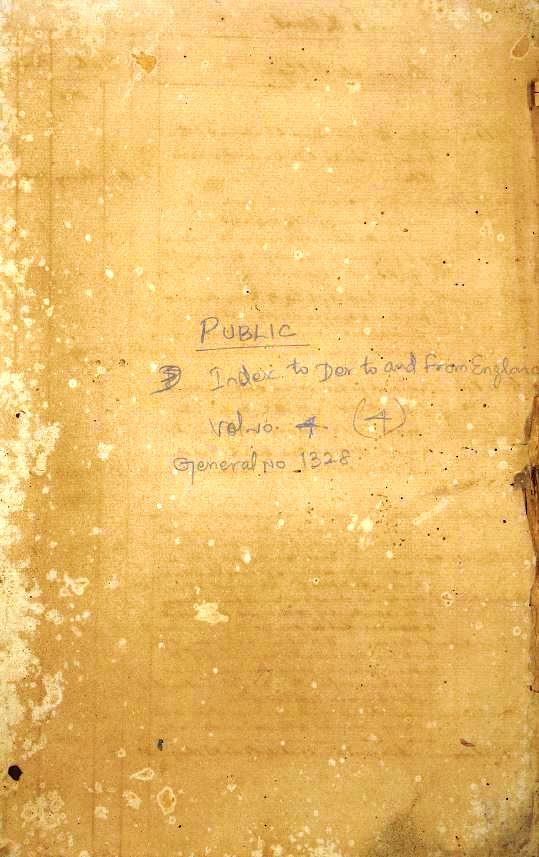 PUBLIC
Index to Des to and from England
Vol. No. 4. (4)
General No 1328